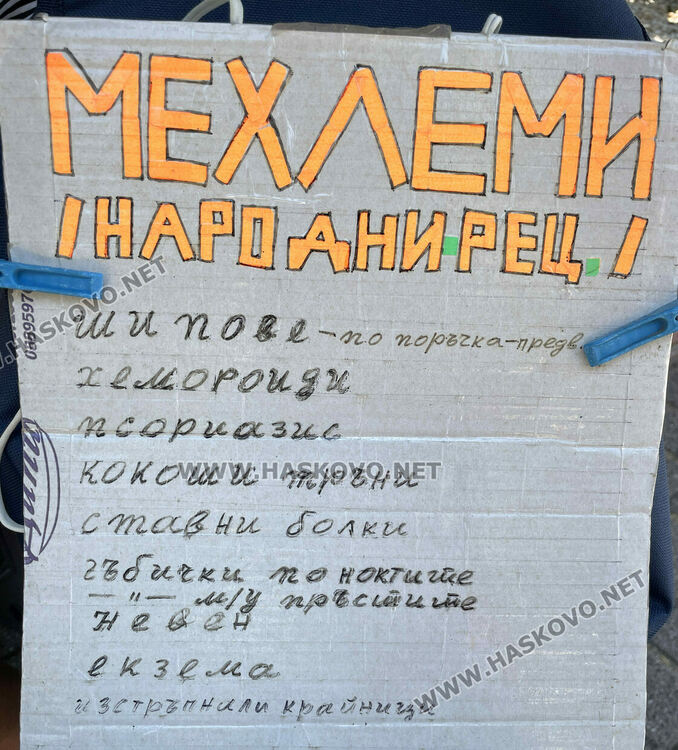 МЕХЛЕМИ
/НАРОДНИ.РЕЦ./
шипове – по поръчка-предв.
хемороиди
псориазис
кокоши тръни
ставни болки
гъбички по ноктите
— " — м/у пръстите
невен
екзема
изстръпнили крайници
WWW.HASKOVO.NET
WWW.HASKOVO.NET
WWW.HASKOVO.NET
WWW.HASKOVO.NET
WWW.HASKOVO.NET